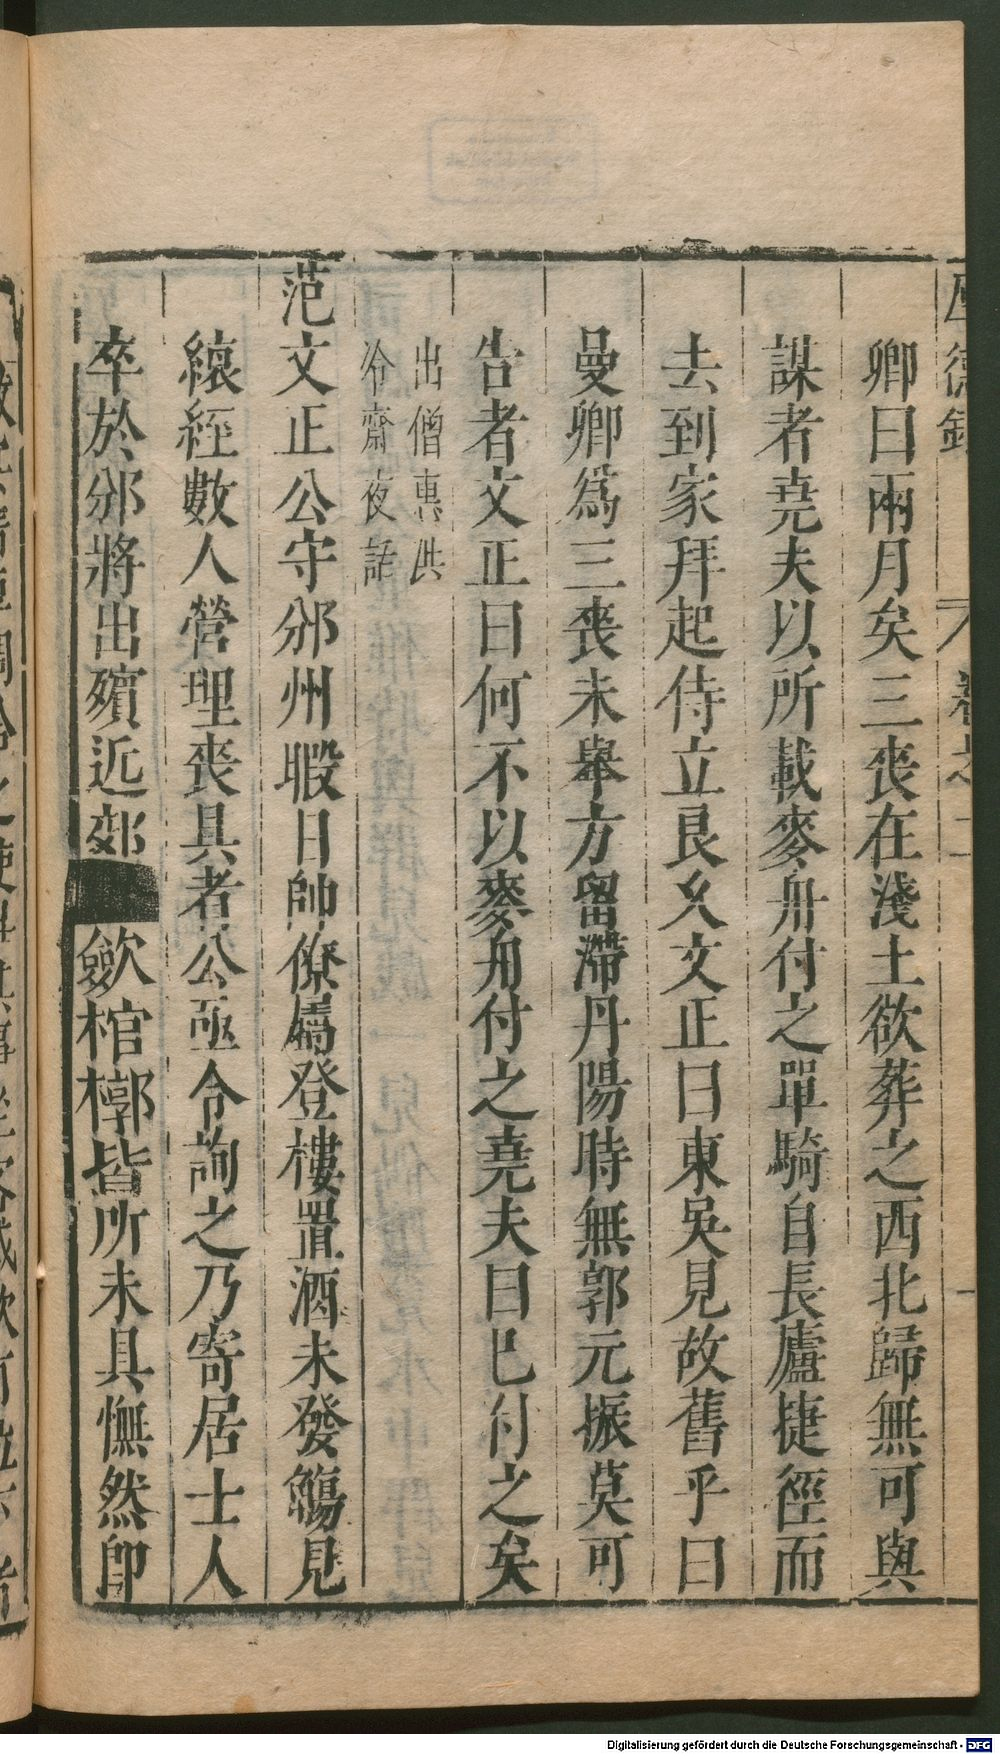 厚德錄 卷之二
卿曰兩月矣三喪在淺土欲葬之西北歸無可與
謀者堯夫以所載麥舟付之單騎自長廬捷徑而
去到家拜起侍立良久文正曰東吳見故舊乎曰
曼卿爲三喪未舉方留滯丹陽時無郭元振莫可
告者文正曰何不以麥舟付之堯夫曰已付之矣
出僧惠洪
冷齋夜話
范文正公守邠州暇日帥僚屬登樓置酒未發觴見
縗絰數人營理喪具者公亟令詢之乃寄居士人
卒於邠將出殯近郊
歛棺槨皆所未具憮然卽
Digitalisierung gefördert durch die Deutsche Forschungsgemeinschaft - DFG